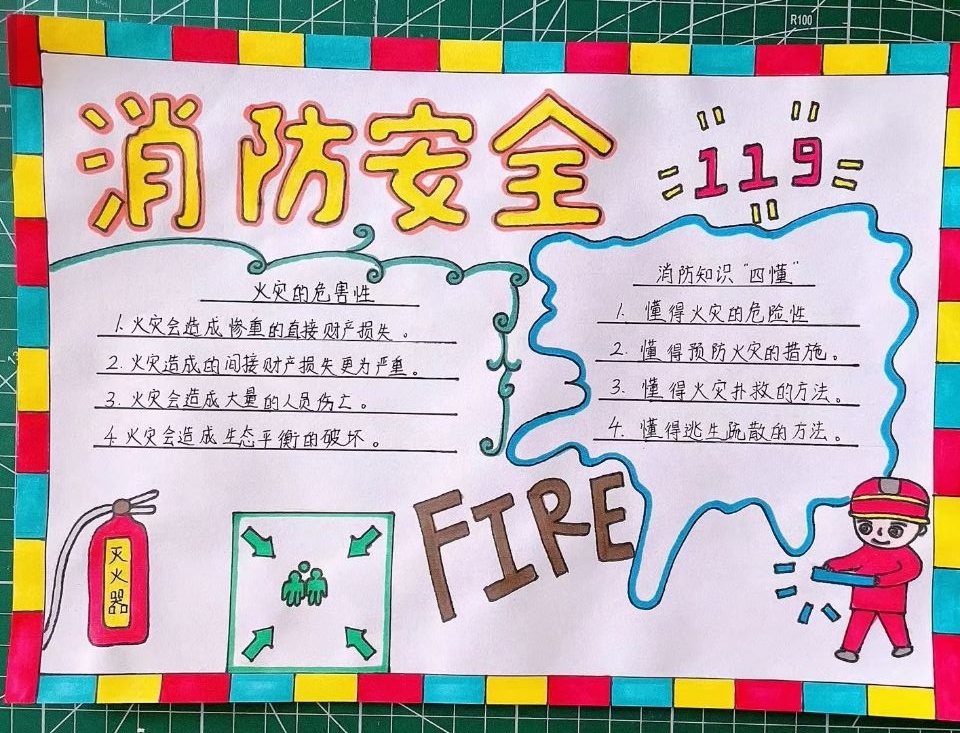 消防安全
119
火灾的危害性
1.火灾会造成惨重的直接财产损失。
2.火灾造成的间接财产损失更为严重。
3.火灾会造成大量的人员伤亡。
4.火灾会造成生态平衡的破坏。
消防知识“四懂”
1.懂得火灾的危险性
2.懂得预防火灾的措施。
3.懂得火灾扑救的方法。
4.懂得逃生疏散的方法。
FIRE
灭火器
R100